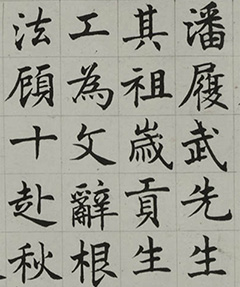 潘履武先生
其祖歲貢生
工為文辭根
法顧十赴秋